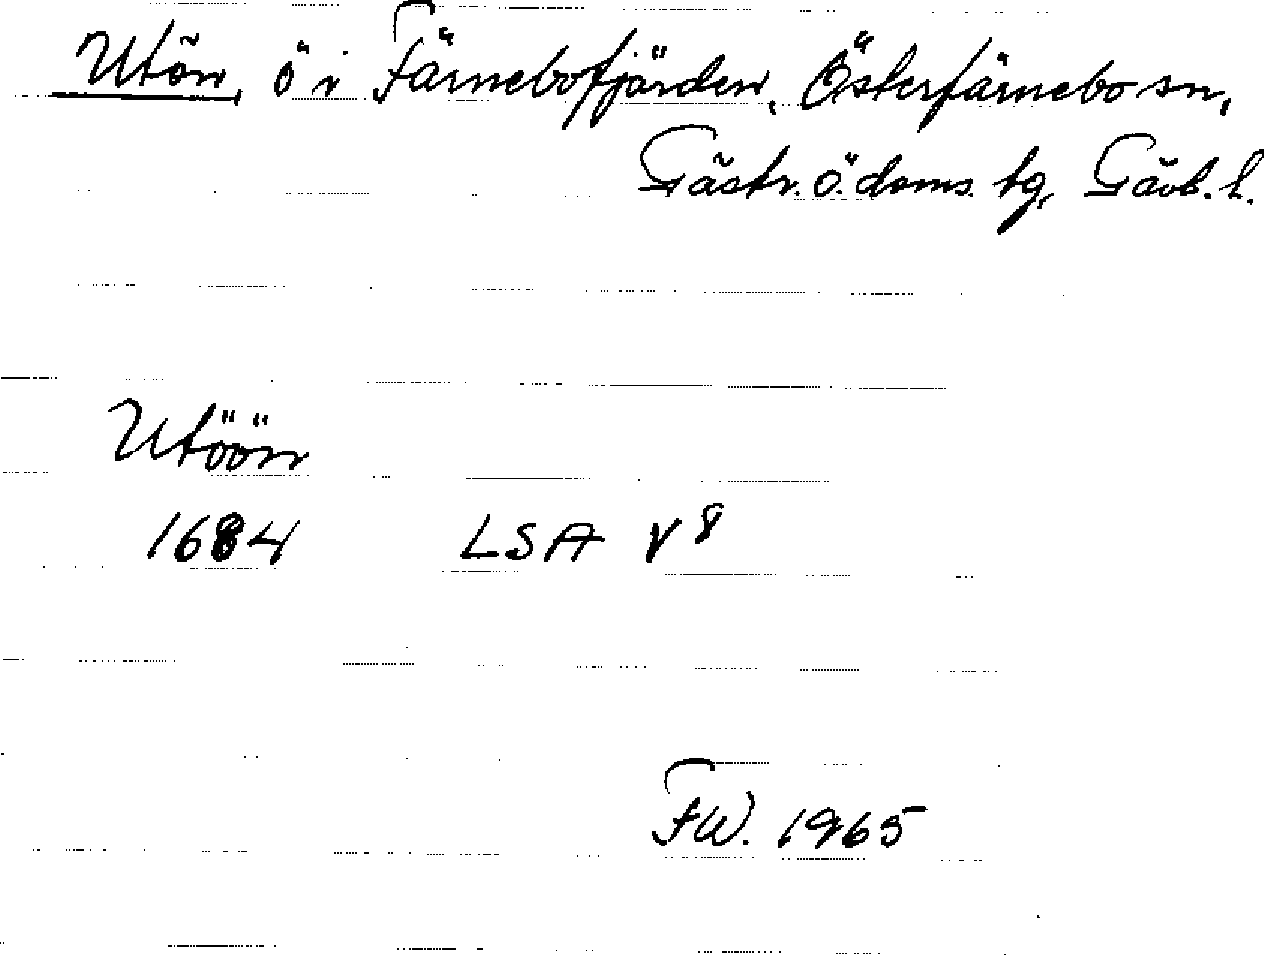 Utön, ö i Färnebofjärden, Österfärnebo sn,
Gästr. ö. doms. tg, Gävl. l.
Utöön
1684 LSA V 8
FW. 1965